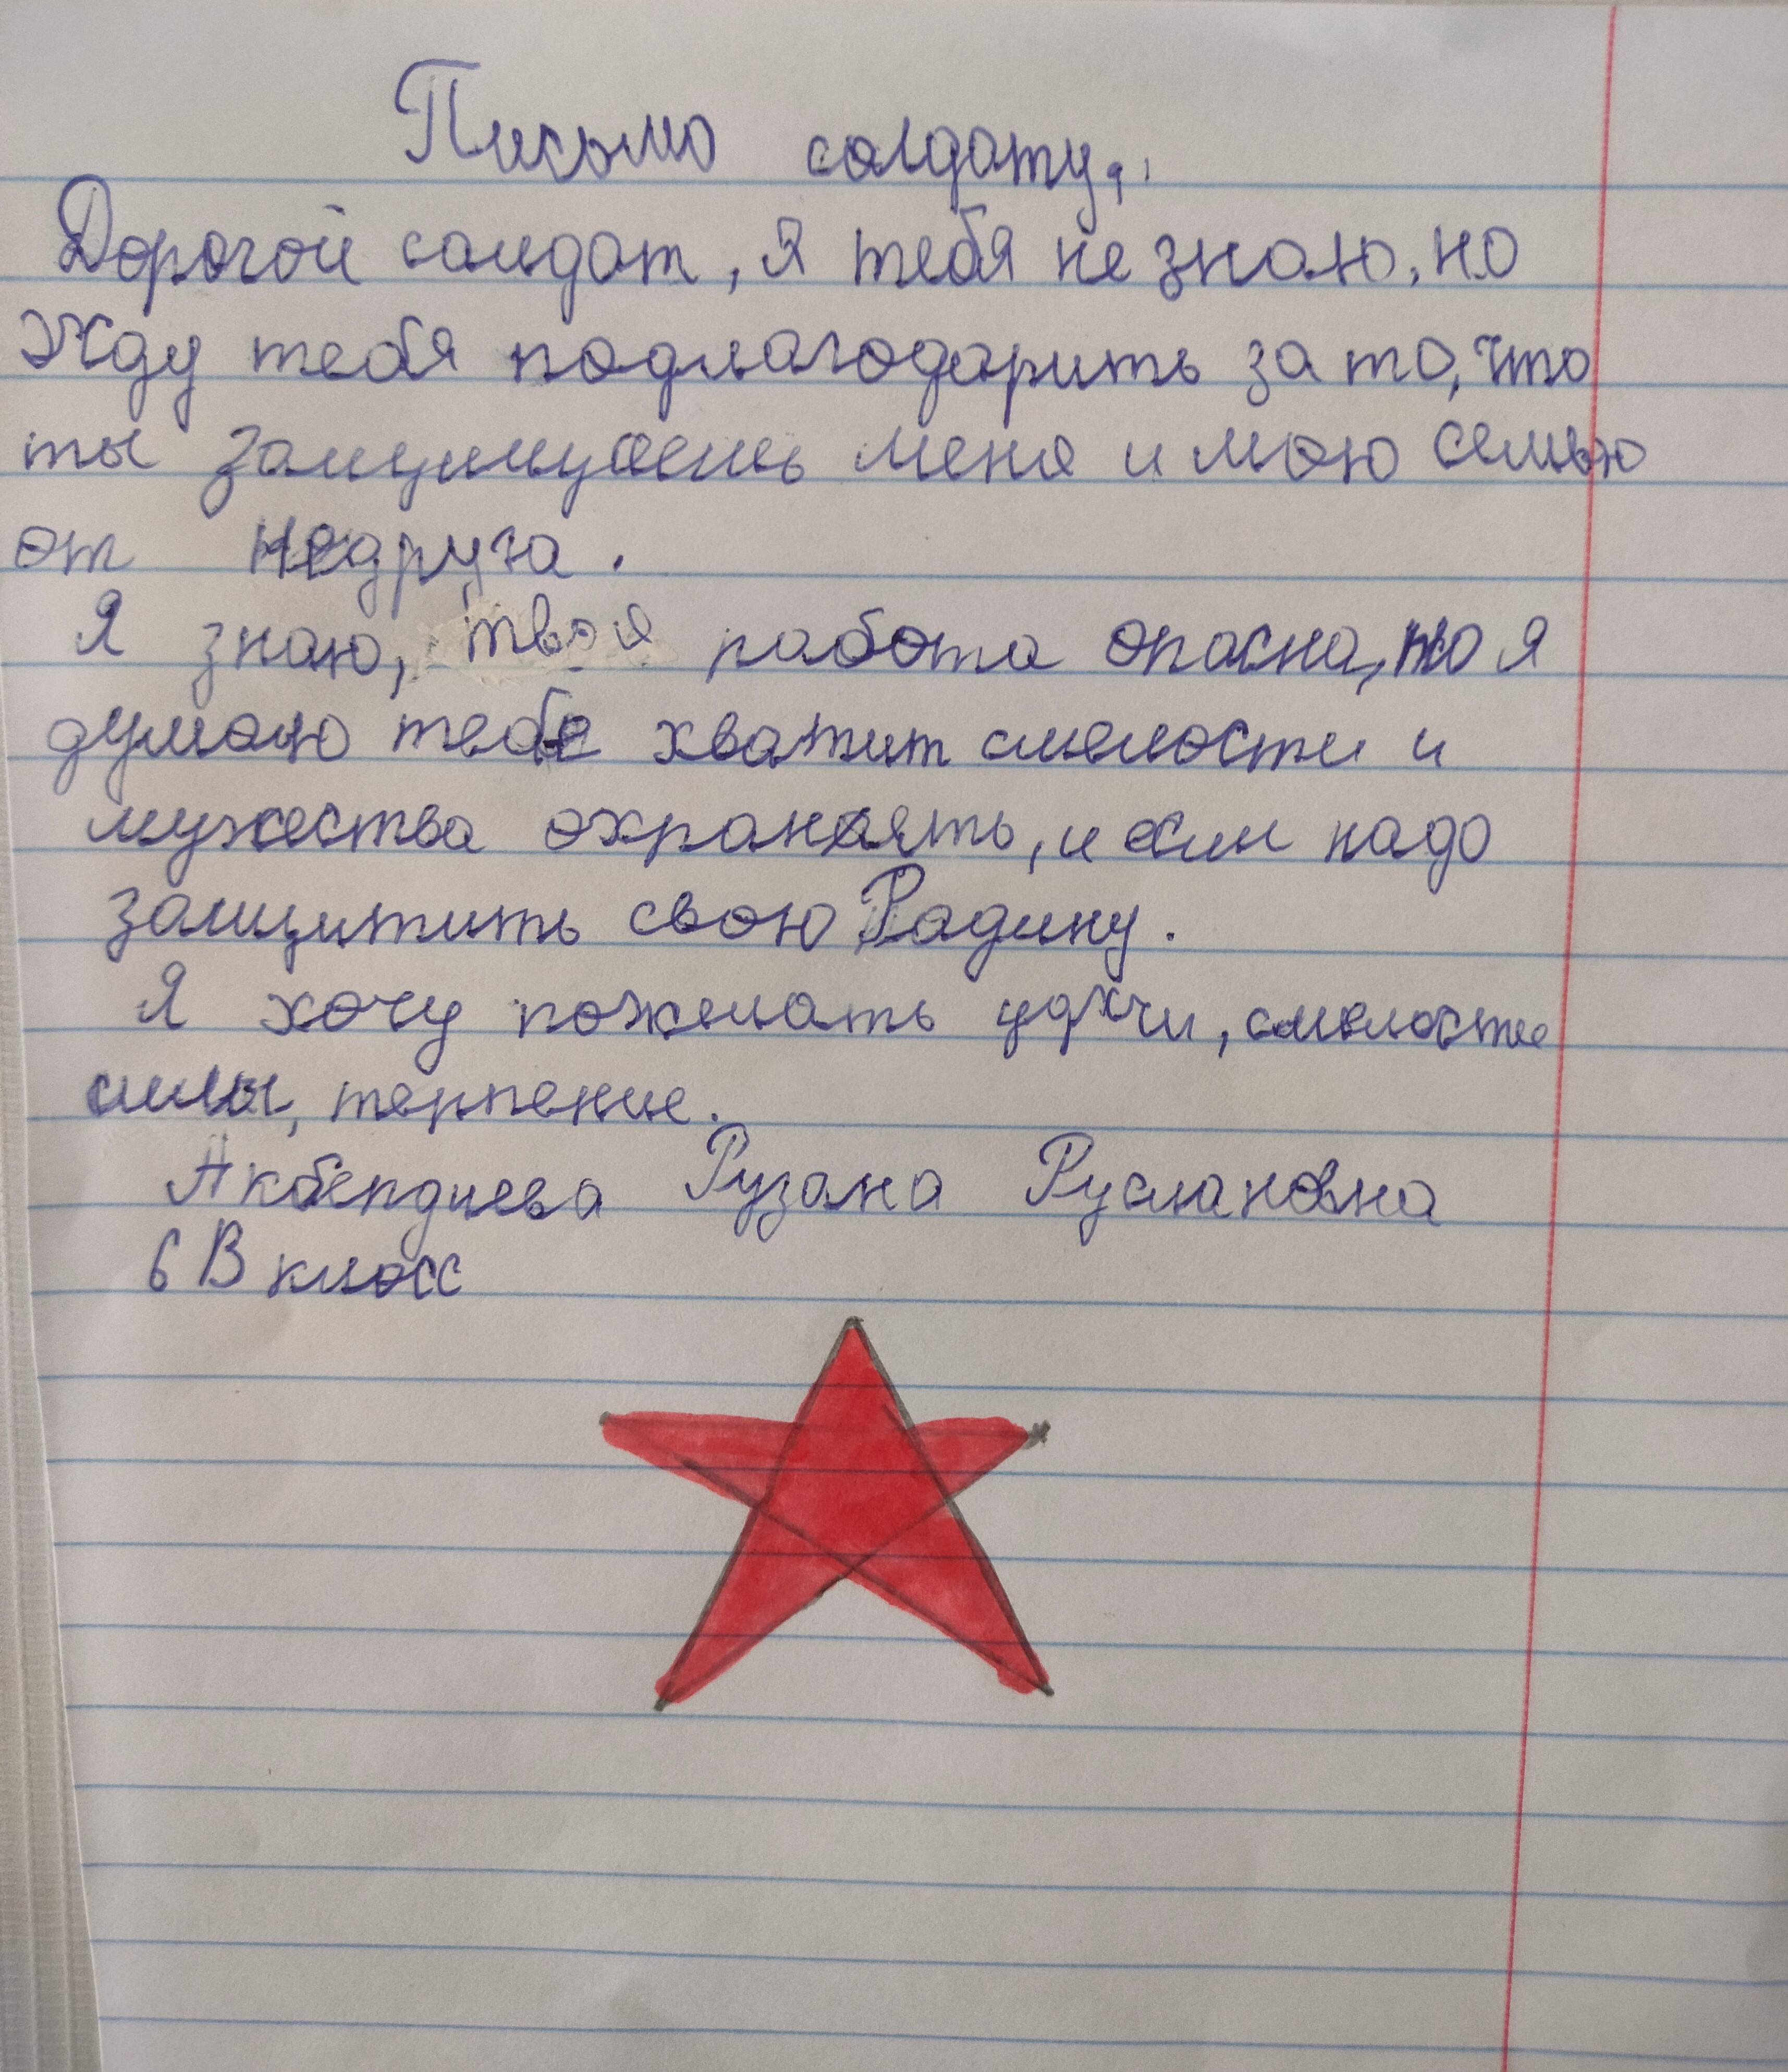 Письмо солдату.
Дорогой солдат, я тебя не знаю, но
Жду тебя подлагодарить за то, что
ты защищуаешь меня и мою семью
от недруга.
Я знаю, твоя работа опасна, но я
думаю тебе хватит смелости и
мужества охранять, и если надо
защитить свою Радину.
Я хочу пожелать удачи, смелости
силы, терпение.
Акбердиева Рузана Руслановна
6 В класс